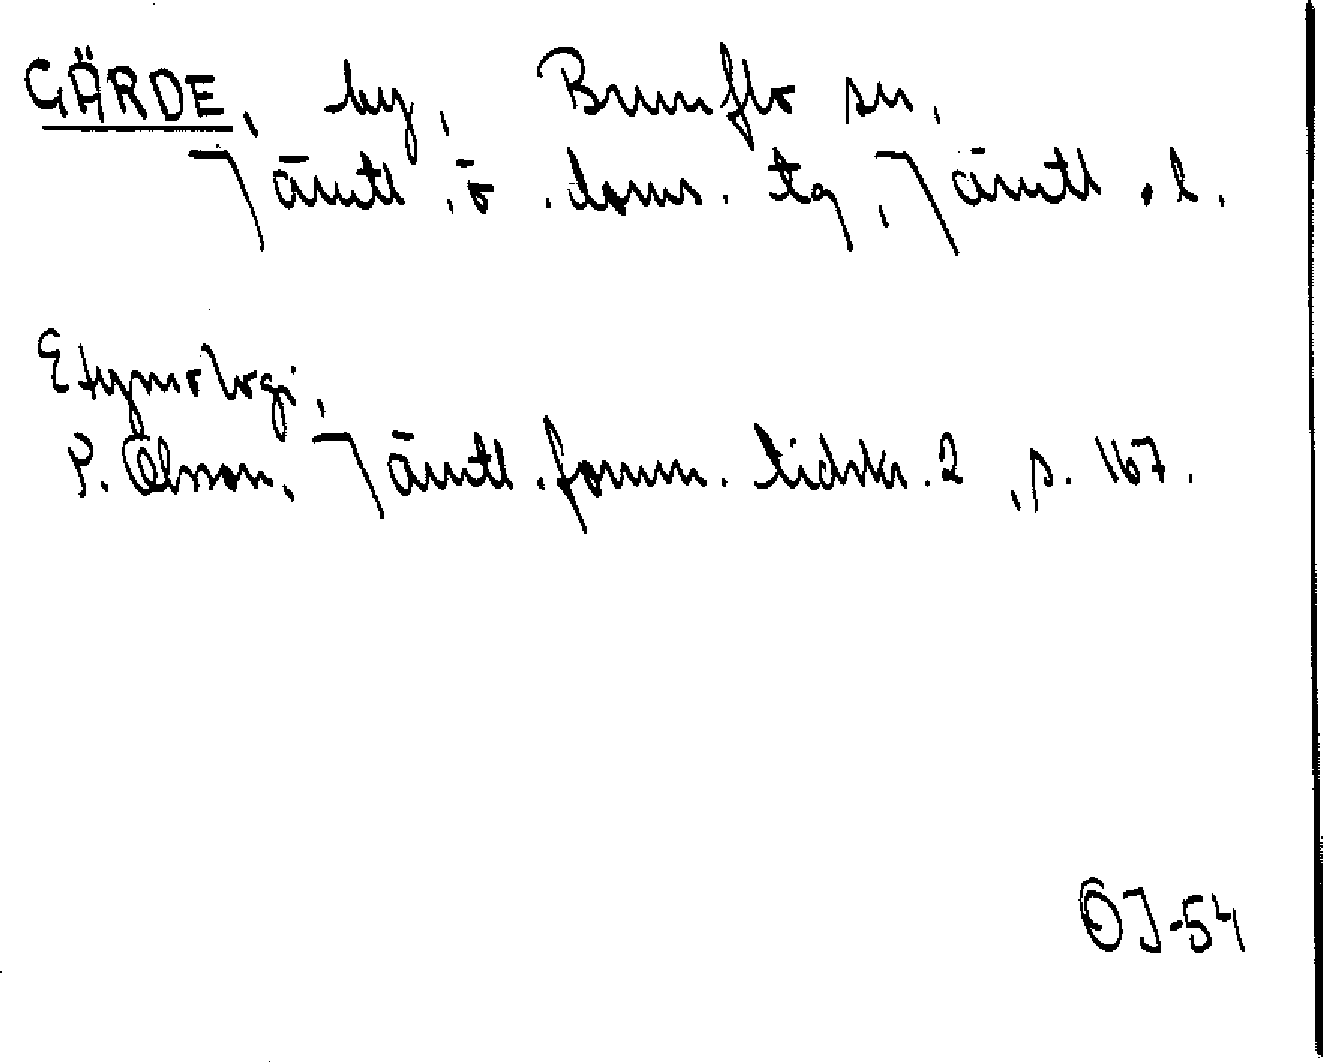 GÄRDE, by, Brunflo sn,
Jämtl. ö. doms. tg, Jämtl. l.
Etymologi,
P. Olsson, Jämtl. fornm. tidskr. 2, s. 167.
OJ-54